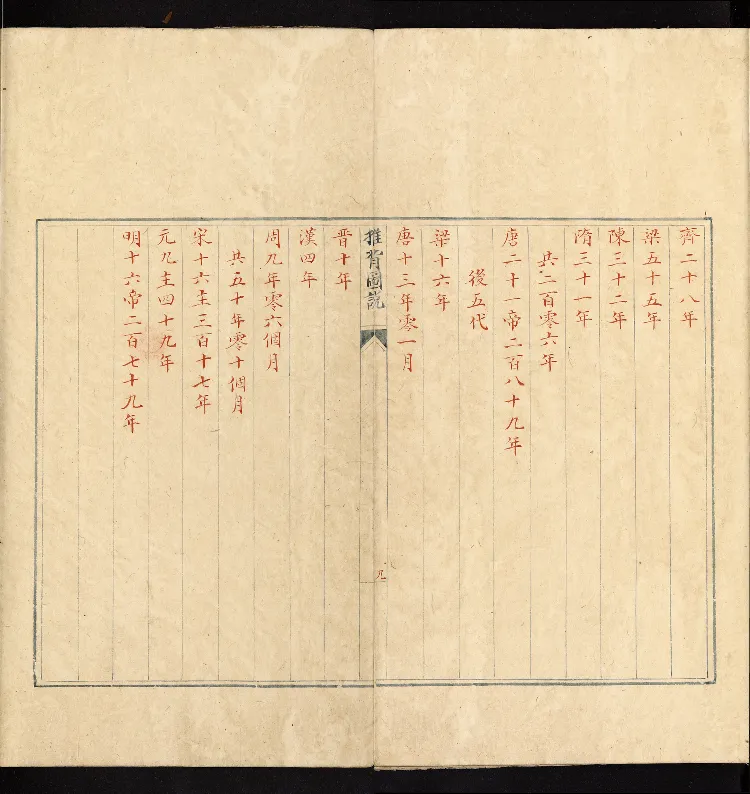 齊二十八年
梁五十五年
陳三十二年
隋三十一年
共二百零六年
唐二十一帝二百八十九年
後五代
梁十六年
唐十三年零一月
推背圖說
九
晉十年
漢四年
周九年零六個月
共五十年零十個月
宋十六主三百十七年
元九主四十九年
明十六帝二百七十九年